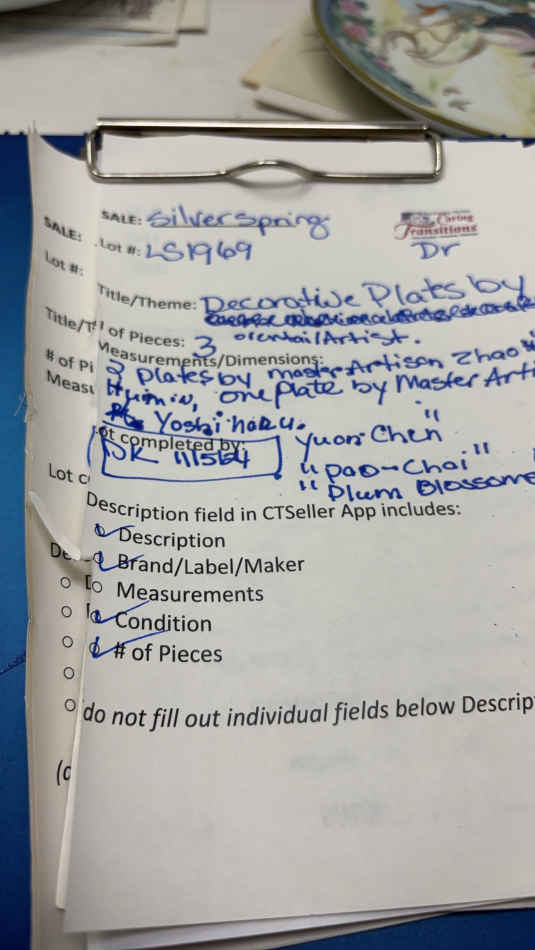 SALE: Silver Spring
Caring
Transitions
SALE:
Lot #: LS1969
Dr
Lot #:
Title/Theme: Decorative Plates by
Title/T
# of Pieces: 3 orentail Artist.
Measurements/Dimensions:
# of Pi
2 plates by master Artisan Zhao
Measu
Huimin, one plate by Master Arti
Yoshiharu.
"
Lot completed by:
Yuan Chen
DR 11/5
"pao-Chai"
Lot c
"Plum Blossoms
Description field in CTSeller App includes:
Description
De
Brand/Label/Maker
Measurements
Condition
# of Pieces
do not fill out individual fields below Descrip
(d